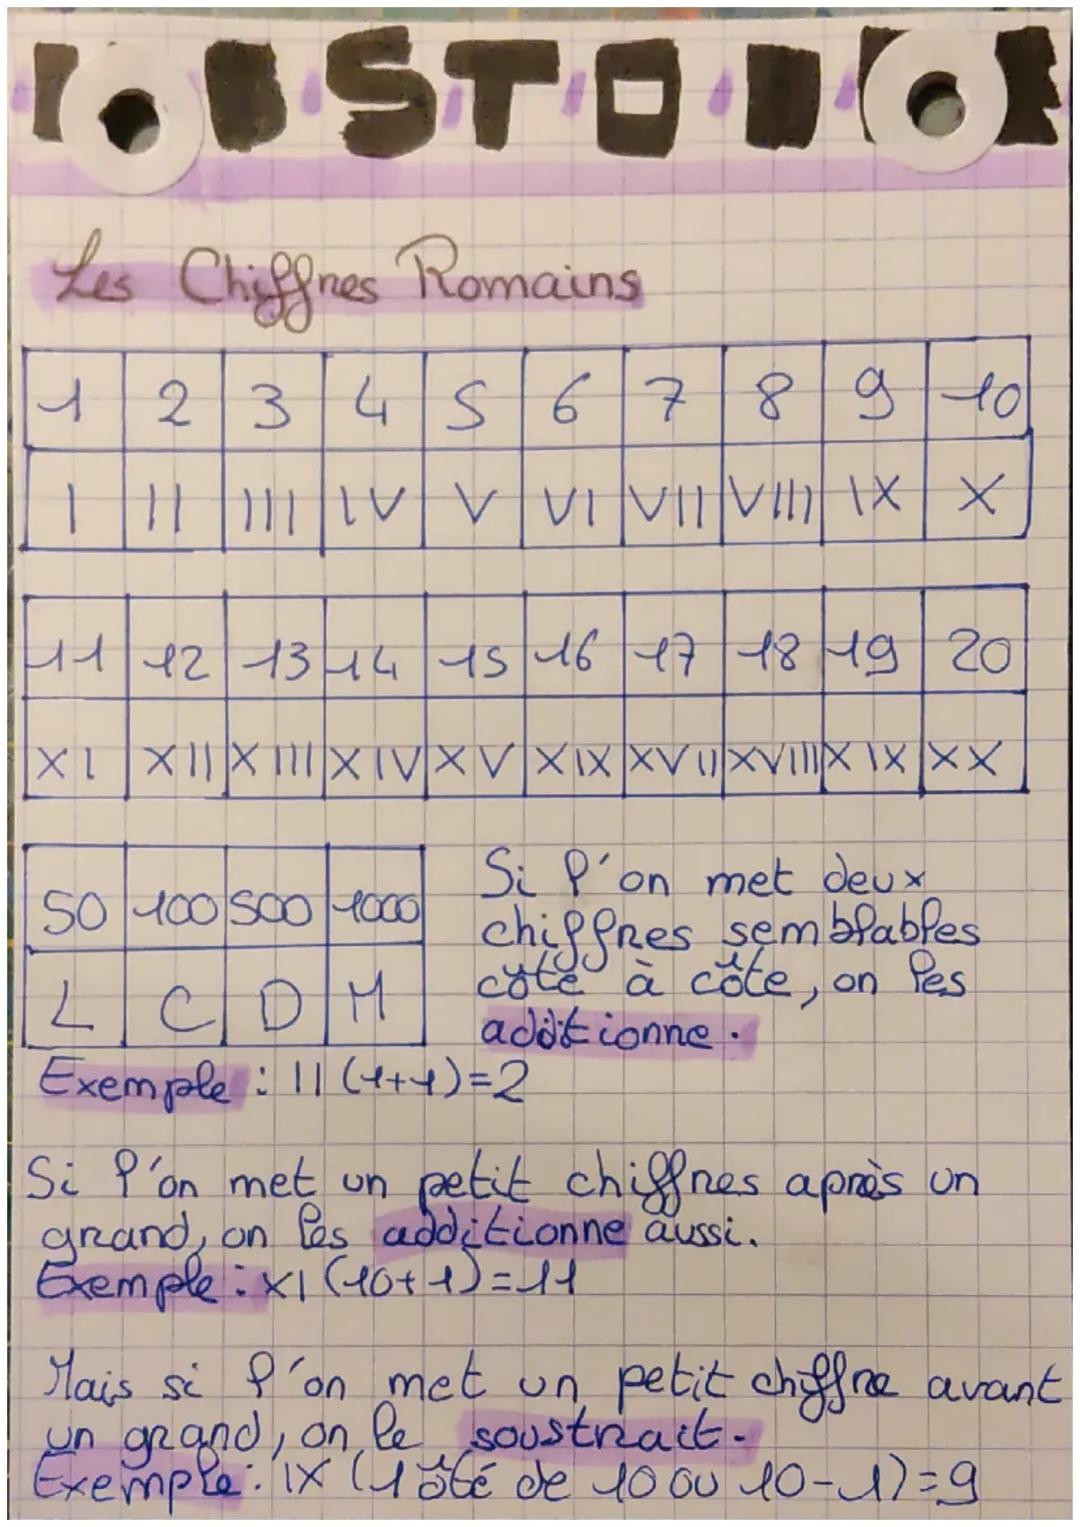 HISTOIRE
Les Chiffres Romains
1 2 3 4 5 6 7 8 9 10
I II III IV V VI VII VIII IX X
11 12 13 14 15 16 17 18 19 20
XI XII XIII XIV XV XIX XVII XVIII XIX XX
50 100 500 1000
L C D M
Si l'on met deux
chiffres semblables
côte à côte, on les
additionne.
Exemple : II (1+1)=2
Si l'on met un petit chiffres après un
grand, on les additionne aussi.
Exemple : XI (10+1)=11
Mais si l'on met un petit chiffre avant
un grand, on le soustrait.
Exemple : IX (1 ôté de 10 ou 10-1)=9